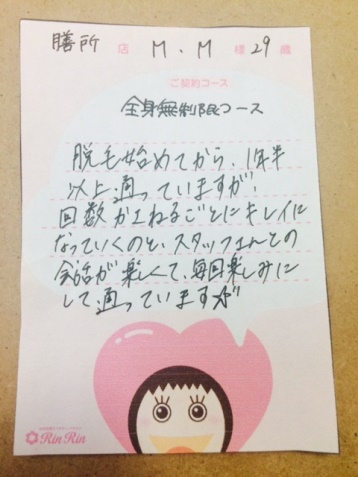 膳所 店 M.M 様 29 歳
ご契約コース
全身無制限コース
脱毛始めてから、1年半
以上通っていますが、
回数かさねるごとにキレイに
なっていくのと、スタッフさんとの
会話が楽しくて、毎回楽しみに
して通っていますが
RinRin